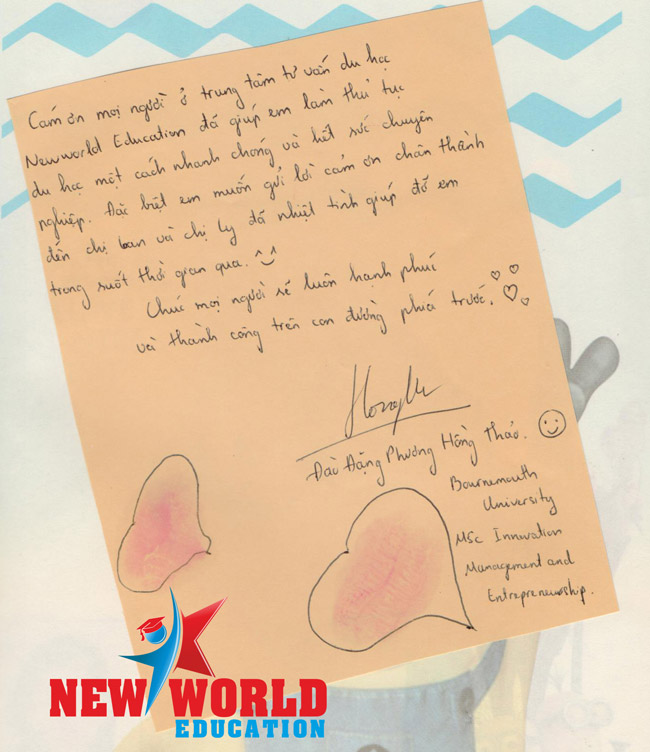 Cám ơn mọi người ở trung tâm tư vấn du học
Newworld Education đã giúp em làm thủ tục
du học một cách nhanh chóng và hết sức chuyên
nghiệp. Đặc biệt em muốn gửi lời cảm ơn chân thành
đến chị Loan và chị Ly đã nhiệt tình giúp đỡ em
trong suốt thời gian qua.
Chúc mọi người sẽ luôn hạnh phúc
và thành công trên con đường phía trước.
Đào Đặng Phương Hồng Thảo.
Bournemouth
University
MSc Innovation
Management and
Entrepreneurship.
NEW WORLD
EDUCATION